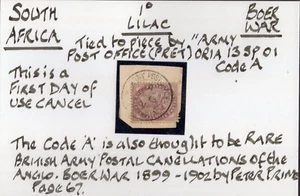 SOUTH 1º BOER
AFRICA LILAC WAR
Tied to piece by "ARMY
POST OFFICE (PRET)ORIA 13 SP 01
Code A
This is a
FIRST DAY OF
USE CANCEL
The Code 'A' is also thought to be RARE
British Army Postal Cancellations of the
Anglo. Boer War 1899-1902 by Peter Prime
Page 67.